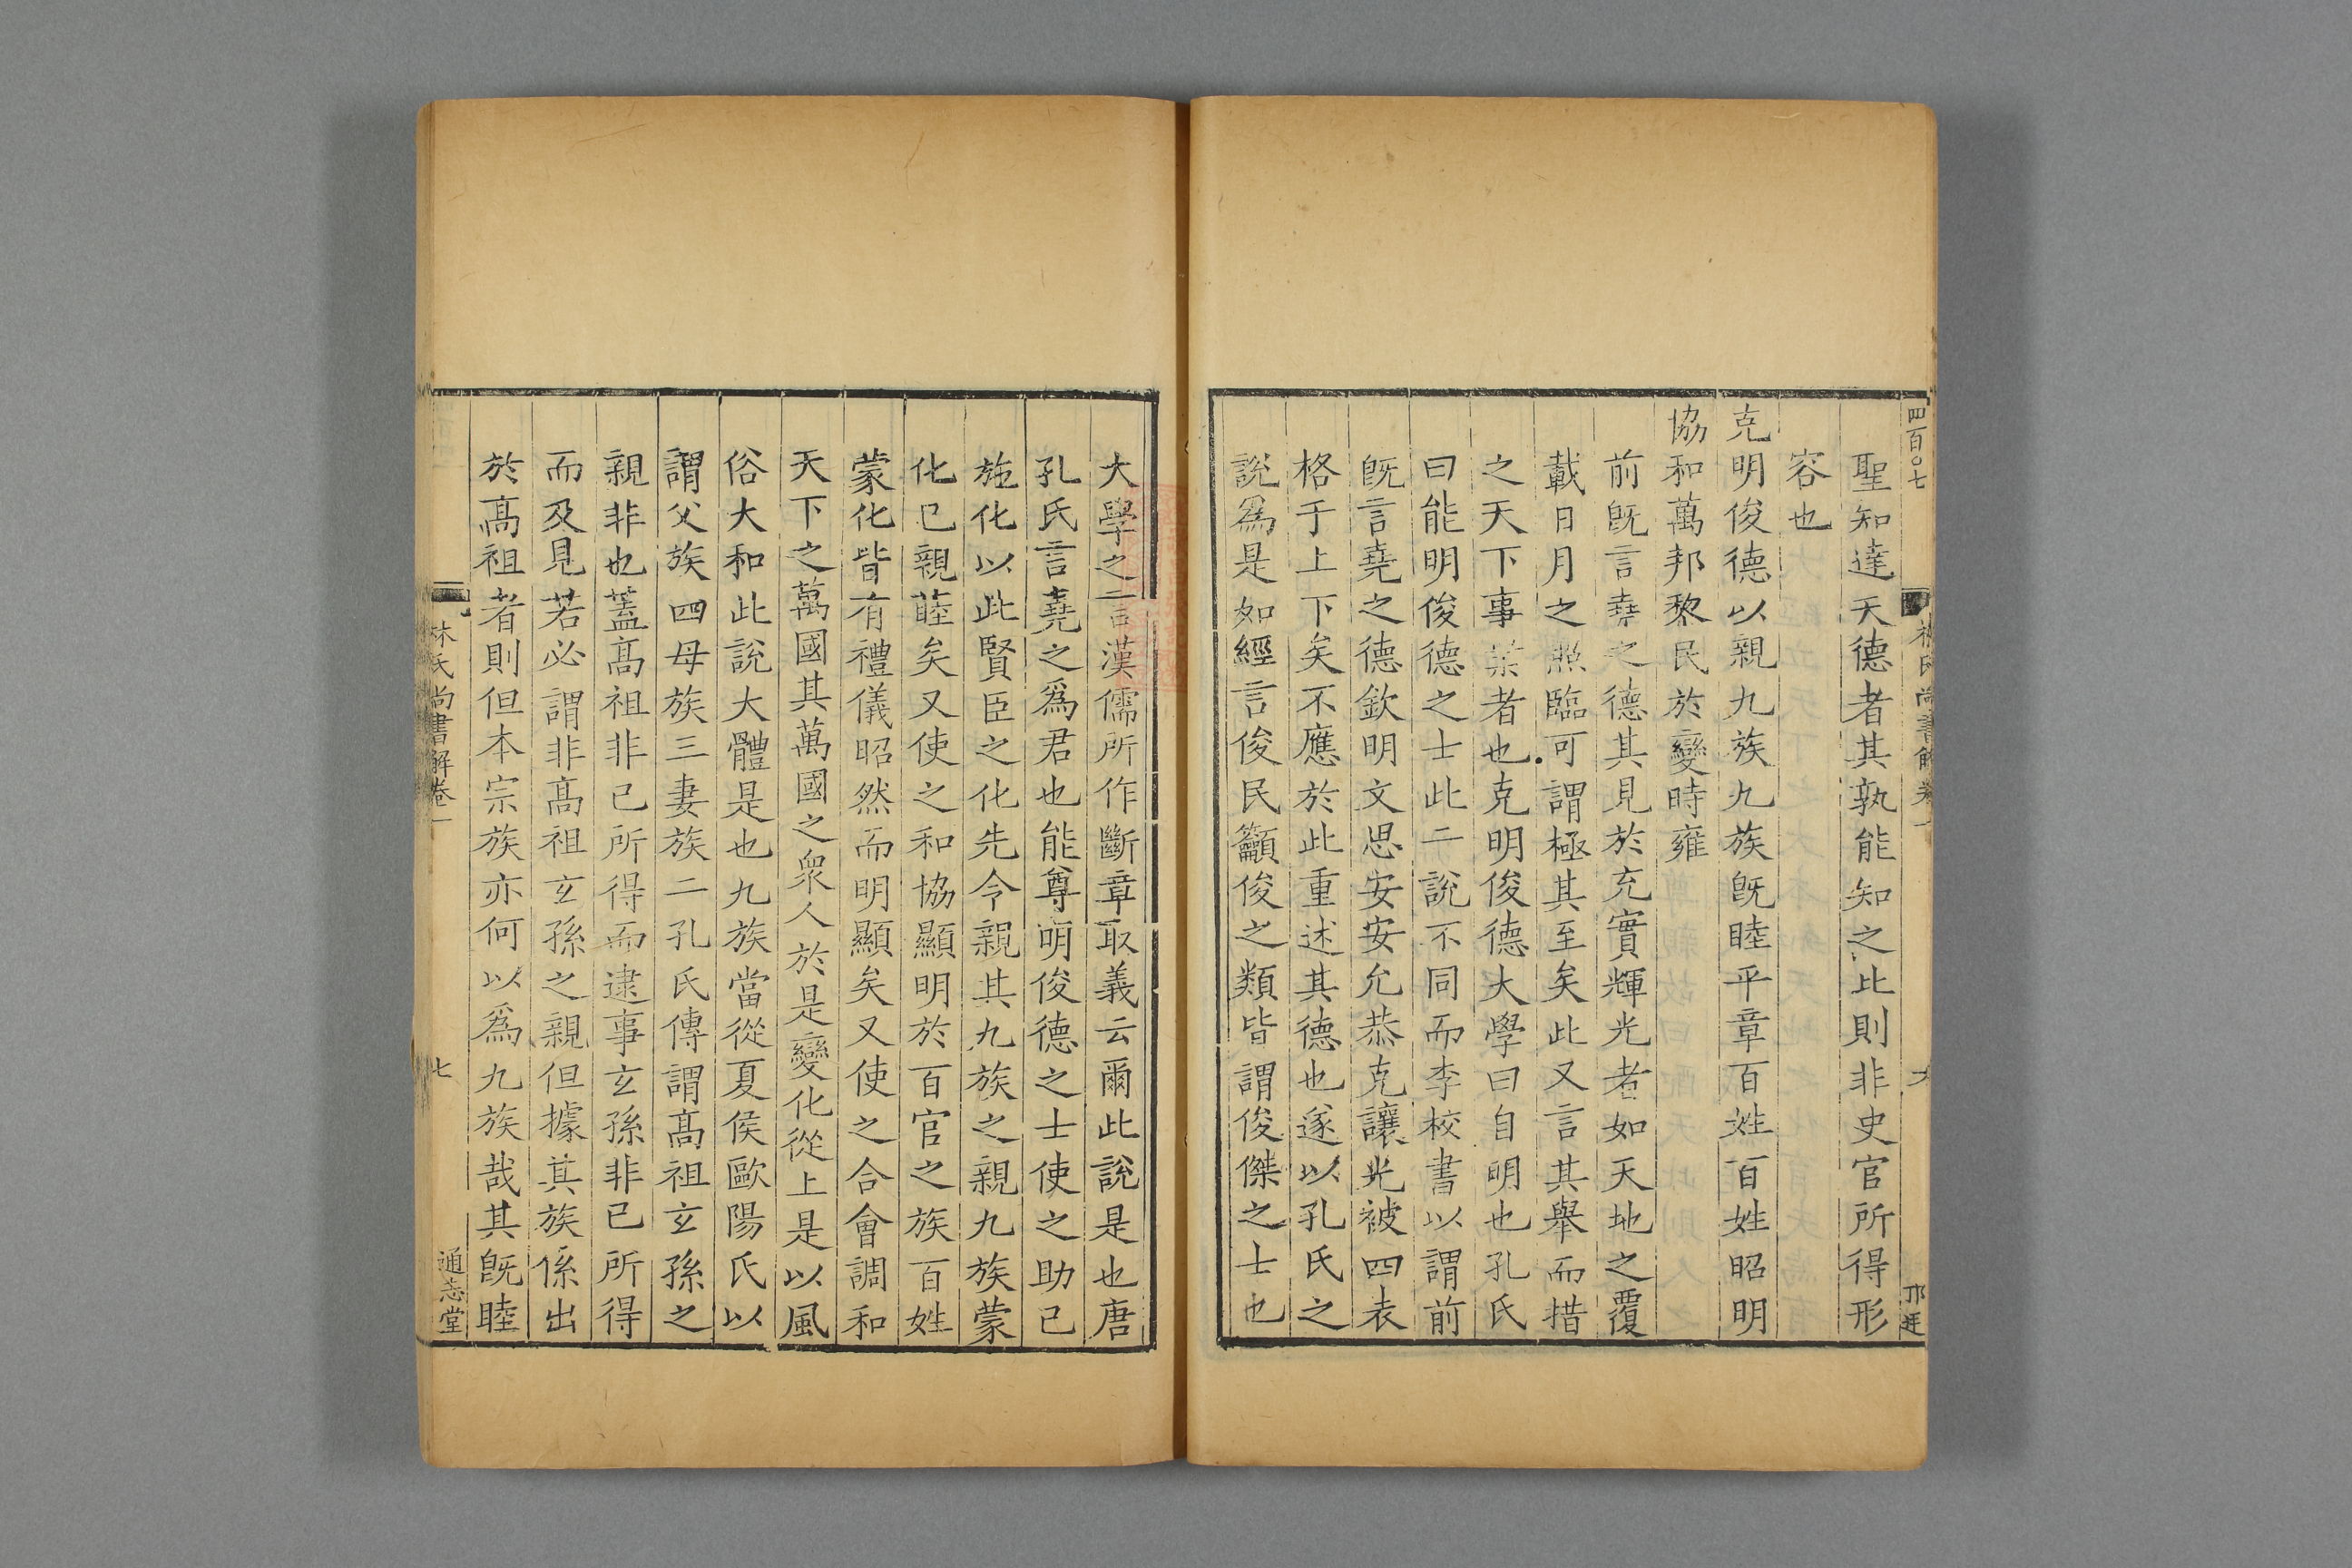 四百○七
林氏尚書解卷一
六
聖知達天德者其孰能知之此則非史官所得形
容也
克明俊德以親九族九族旣睦平章百姓百姓昭明
協和萬邦黎民於變時雍
前旣言堯之德其見於充實輝光者如天地之覆
載日月之照臨可謂極其至矣此又言其舉而措
之天下事業者也克明俊德大學曰自明也孔氏
曰能明俊德之士此二說不同而李校書以謂前
旣言堯之德欽明文思安安允恭克讓光被四表
格于上下矣不應於此重述其德也遂以孔氏之
說爲是如經言俊民籲俊之類皆謂俊傑之士也
大學之言漢儒所作斷章取義云爾此說是也唐
孔氏言堯之爲君也能尊明俊德之士使之助已
施化以此賢臣之化先令親其九族之親九族蒙
化已親睦矣又使之和協顯明於百官之族百姓
蒙化皆有禮儀昭然而明顯矣又使之合會調和
天下之萬國其萬國之衆人於是變化從上是以風
俗大和此說大體是也九族當從夏侯歐陽氏以
謂父族四母族三妻族二孔氏傳謂高祖玄孫之
親非也蓋高祖非已所得而逮事玄孫非已所得
而及見若必謂非高祖玄孫之親但據其族係出
於高祖者則但本宗族亦何以爲九族哉其旣睦
林氏尚書解卷一
七
通志堂